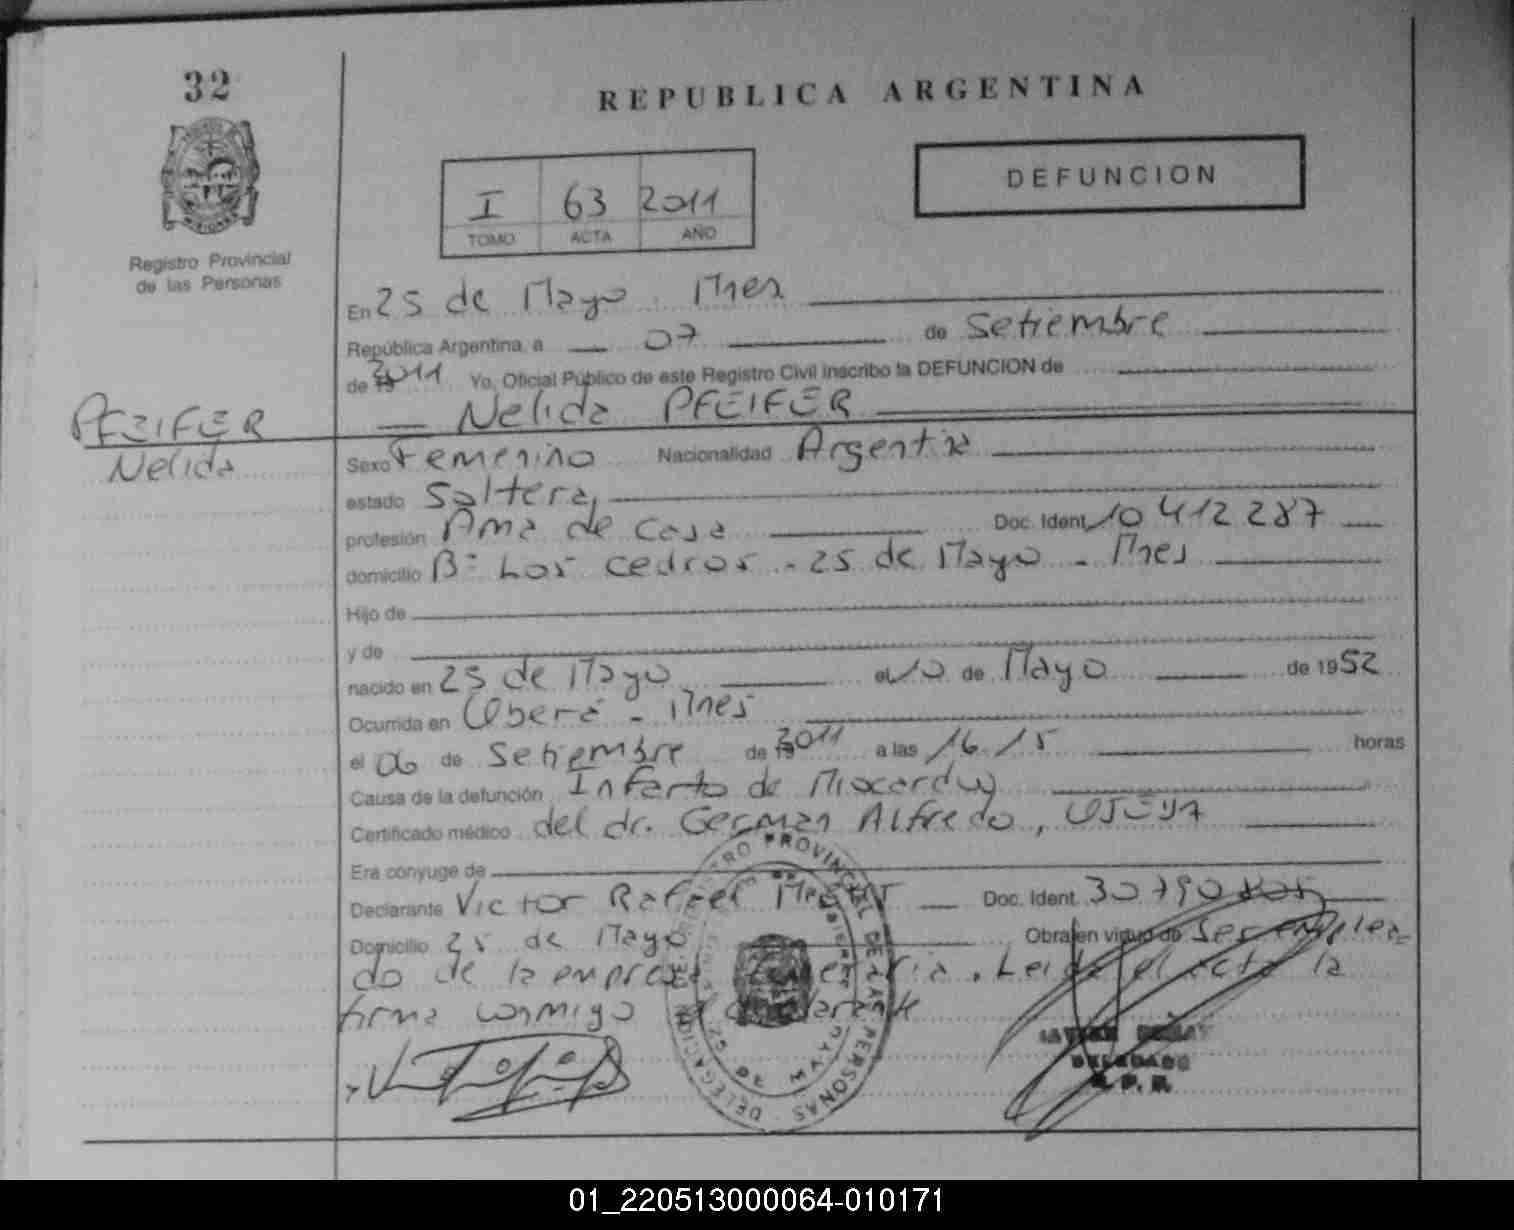 32
REPUBLICA ARGENTINA
I 63 2011
TOMO ACTA AÑO
DEFUNCION
Registro Provincial
de las Personas
En 25 de Mayo. Mnes
República Argentina, a 07 de Setiembre
de 2011 Yo, Oficial Público de este Registro Civil inscribo la DEFUNCION de
Nelida PFEIFER
PFEIFER
Nelida
Sexo Femenino Nacionalidad Argentina
estado Soltera
profesión Ama de Casa Doc. Ident. 10 412 287
domicilio Bº Los Cedros - 25 de Mayo - Mnes
Hijo de
y de
nacido en 25 de Mayo el 10 de Mayo de 1952
Ocurrida en Oberá - Mnes
el 06 de Setiembre de 2011 a las 16.15 horas
Causa de la defunción Infarto de Miocardio
Certificado médico del dr. German Alfredo,
Era conyuge de
Declarante Victor Rafael Doc. Ident. 30 790 805
Domicilio 25 de Mayo Obra en virtud de Ser emplea-
do de la empresa funeraria. Leida el acta la
firma conmigo el declarante
REGISTRO PROVINCIAL DE LAS PERSONAS
DELEGACION
25 DE MAYO
DELEGADO
R. P. P.
01_220513000064-010171